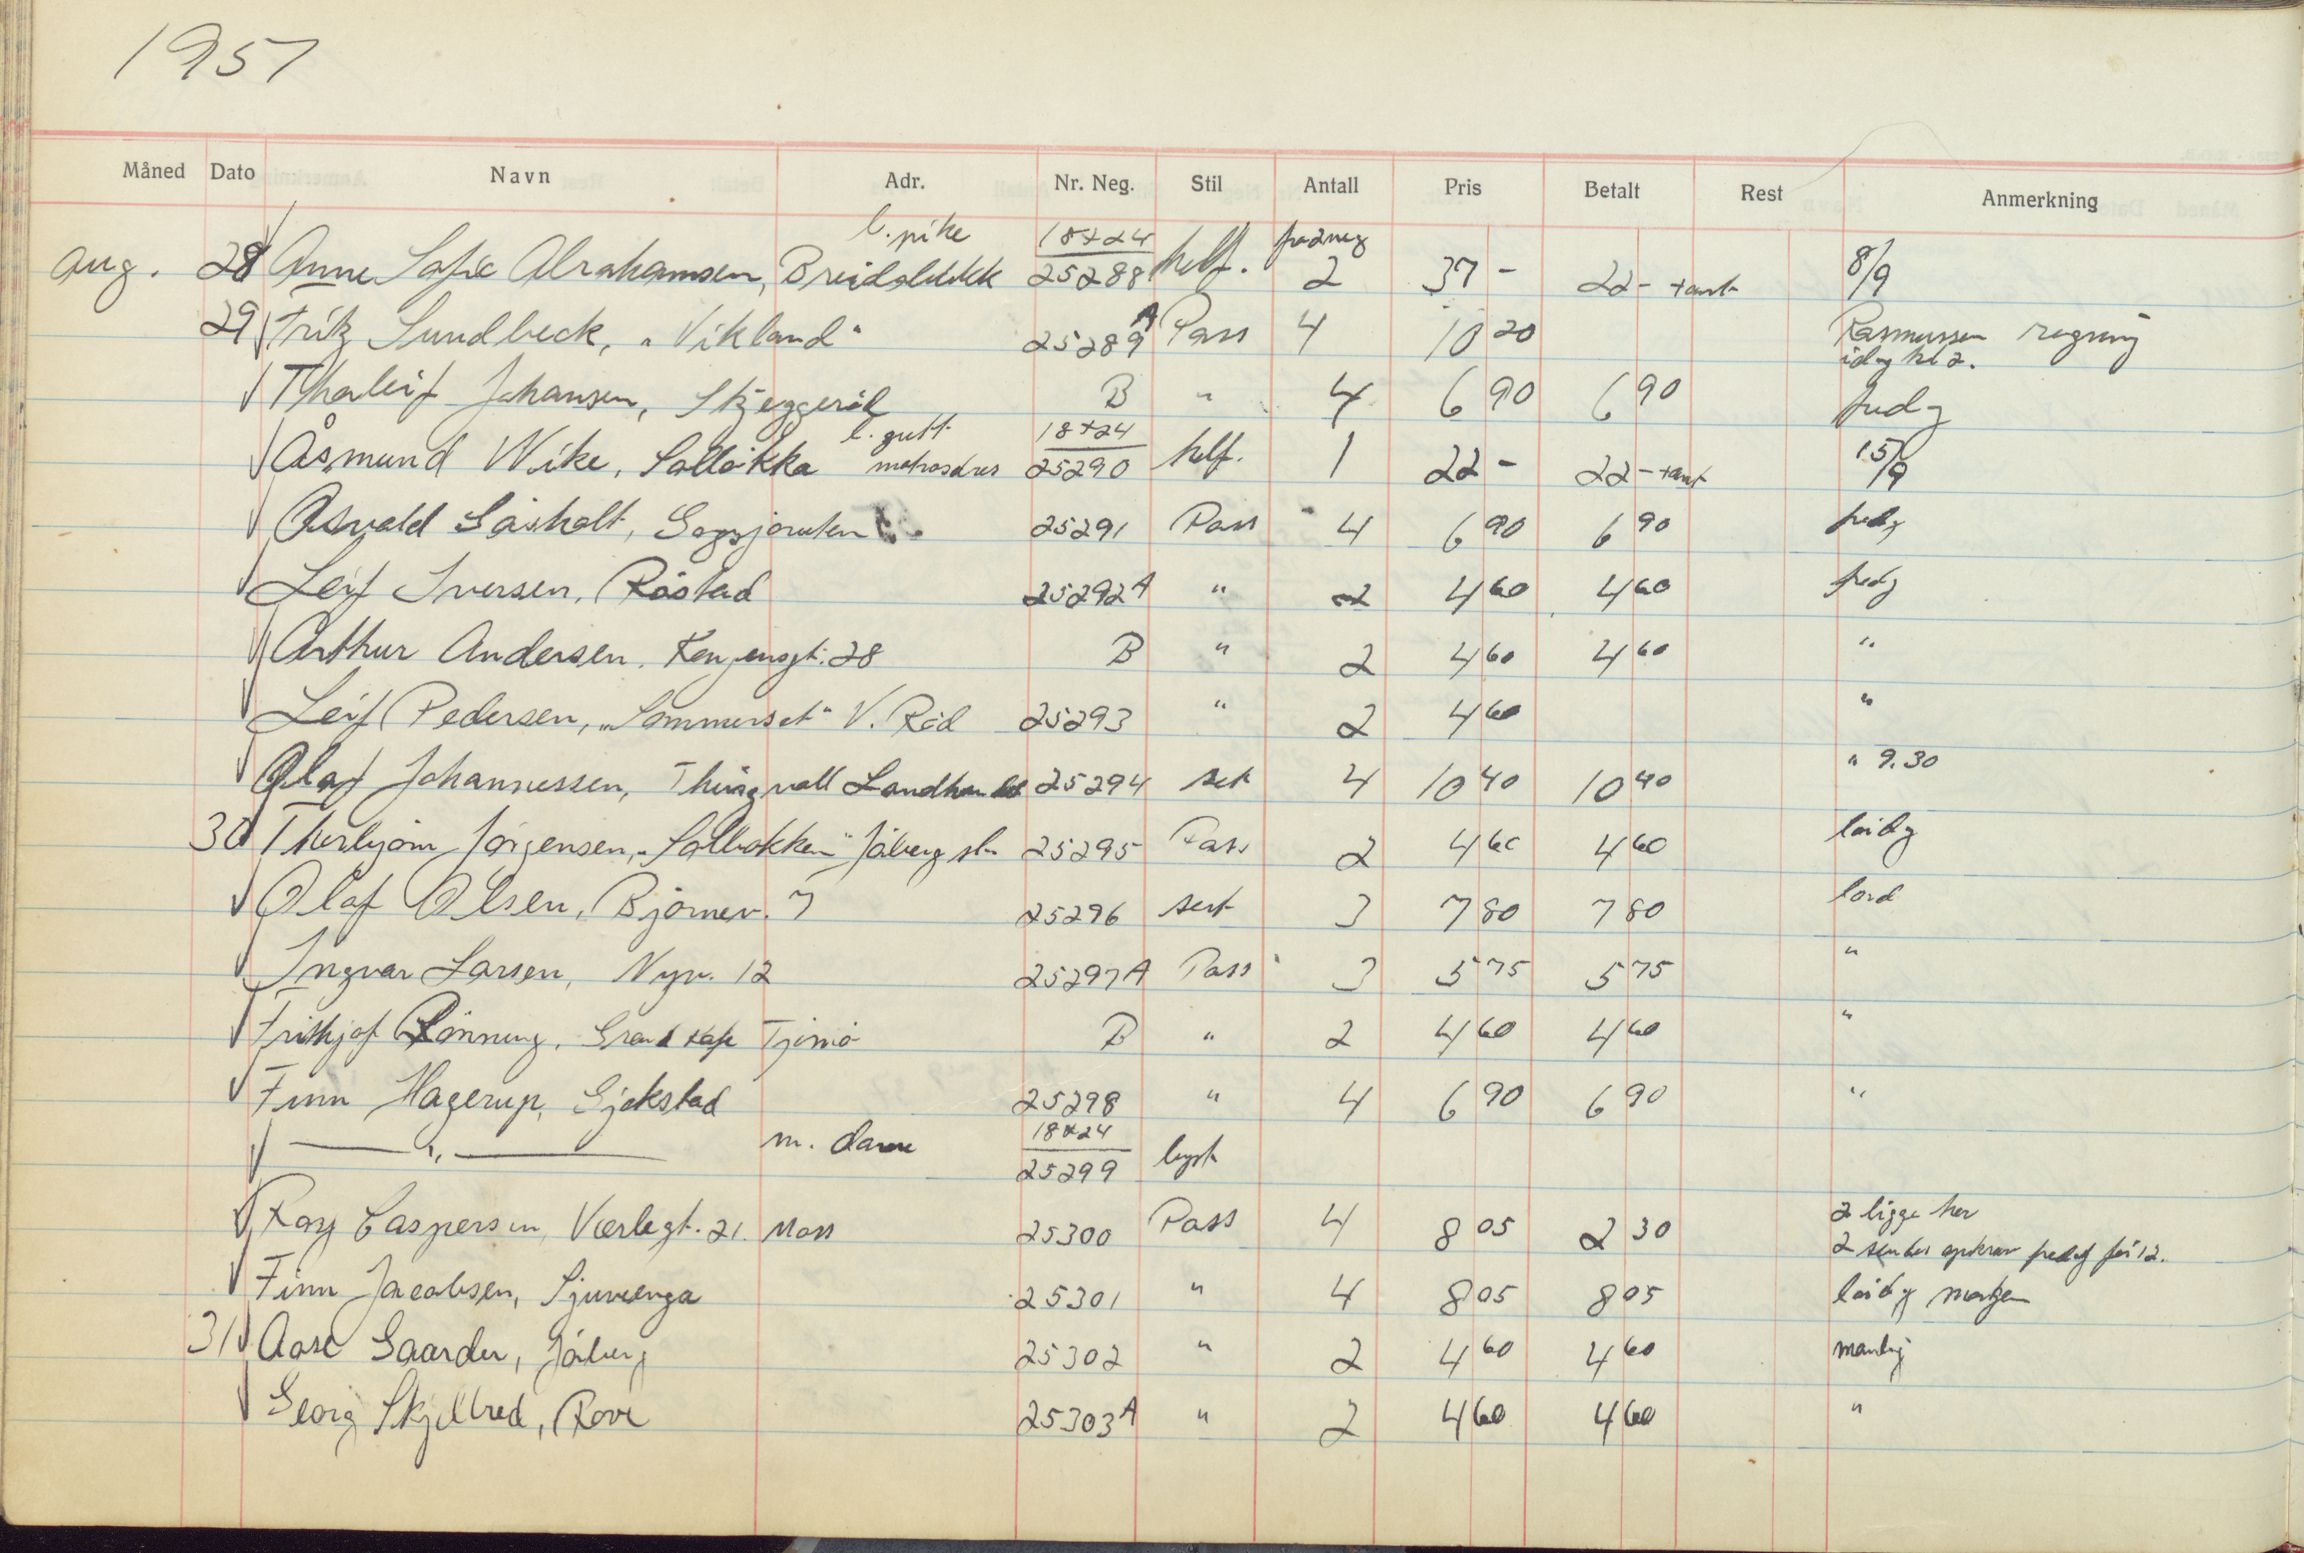 1957
Måned Dato Navn Adr. Nr. Neg. Stil Antall Pris Betalt Rest Anmerkning
l. pike 18x24 fra 2 neg
Aug. 28 Anne Sofie Abrahamsen, Breidablikk 25288 helf. 2 37 - 22 - 8/9
29 Fritz Sundbeck, "Vikland" 25289 A Pass 4 10 20 Rasmussen regning
idag kl 2.
Thorleif Johansen, Skjeggerød B " 4 6 90 6 90 fredg
l. gutt 18x24
Åsmund Wike, Solløkka matrosdress 25290 helf. 1 22 - 22 - 15/9
Osvald Låsholt, 25291 Pass 4 6 90 6 90 fredg
Leif Iversen, Råstad 25292 A " 2 4 60 4 60 fredg
Arthur Andersen, Kongensgt. 28 B " 2 4 60 4 60 "
Leif Pedersen, "Sommerset" V. Rød 25293 " 2 4 60 "
Olaf Johannessen, Thingvall Landhandel 25294 sek 4 10 40 10 40 " 9.30
30 Thorbjørn Jørgensen, "Solbakken" Jåberg st. 25295 Pass 2 4 60 4 60 lördg
Olaf Olsen, Bjørnev. 7 25296 sert 3 7 80 7 80 lörd
Ingvar Larsen, Nyv. 12 25297 A Pass 3 5 75 5 75 "
Frithjof Rønning, Grand kafe Tjømø B " 2 4 60 4 60 "
Finn Hagerup, Gjekstad 25298 " 4 6 90 6 90 "
18x24
— " — m. dame 25299 byst
Roy Caspersen, Værlegt. 21. Moss 25300 Pass 4 8 05 2 30 2 ligge her
2 sendes opkrav fredg før 12.
Finn Jacobsen, Sjuvenga 25301 " 4 8 05 8 05 lördg
31 Aase Gaarder, Jåberg 25302 " 2 4 60 4 60 mandg
Georg Skjelbred, Rove 25303 A " 2 4 60 4 60 "